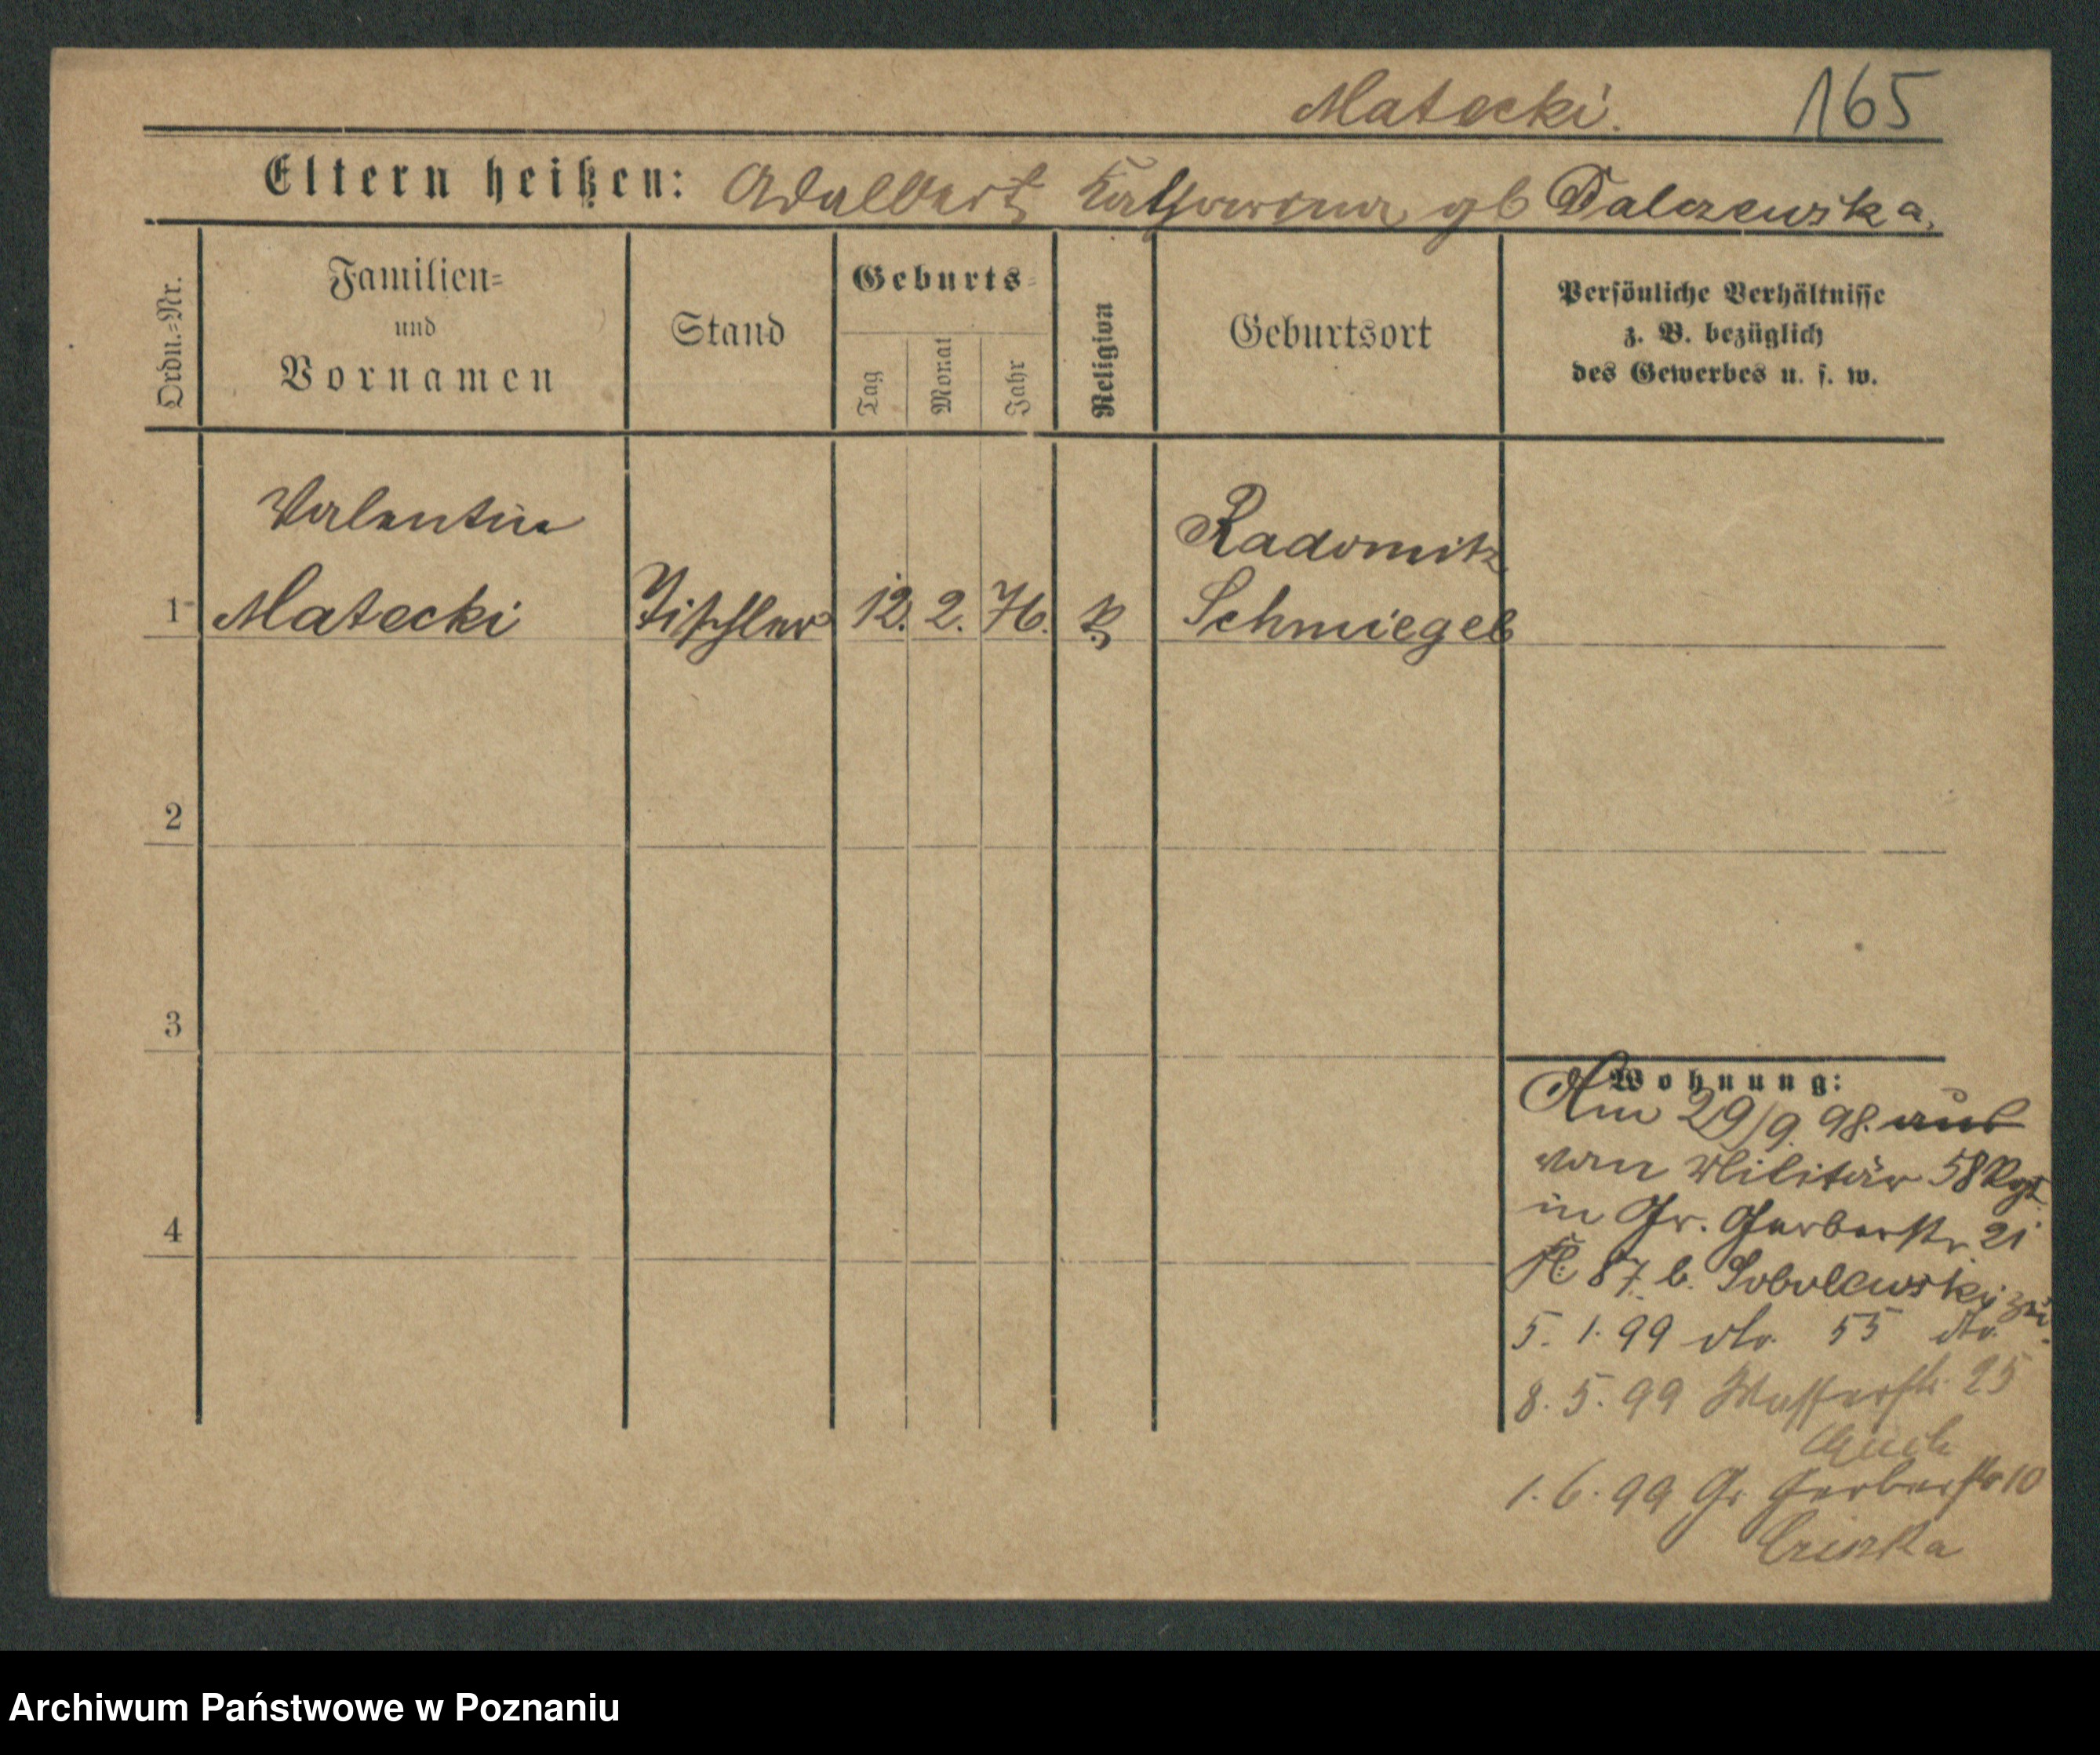 Matecki. 165
Eltern heißen: Adalbert Katharina gb Dalczewska.
Ordn.=Nr.
Familien=
und
Vornamen
Stand
Geburts=
Tag
Monat
Jahr
Religion
Geburtsort
Persönliche Verhältnisse
z. B. bezüglich
des Gewerbes u. s. w.
Valentin
Radomitz
1 Matecki Tischler 12. 2. 76. Schmiegel
2
3
Wohnung:
Am 29/9. 98. aus
vom Militär 58 Rgt.
4
in Gr. Gerberstr. 21
87. b. Sobolewski zu.
5. 1. 99 dto. 55 dto.
8. 5. 99 Wasserstr. 25
1. 6. 99 Gr Gerberstr 10
Archiwum Państwowe w Poznaniu